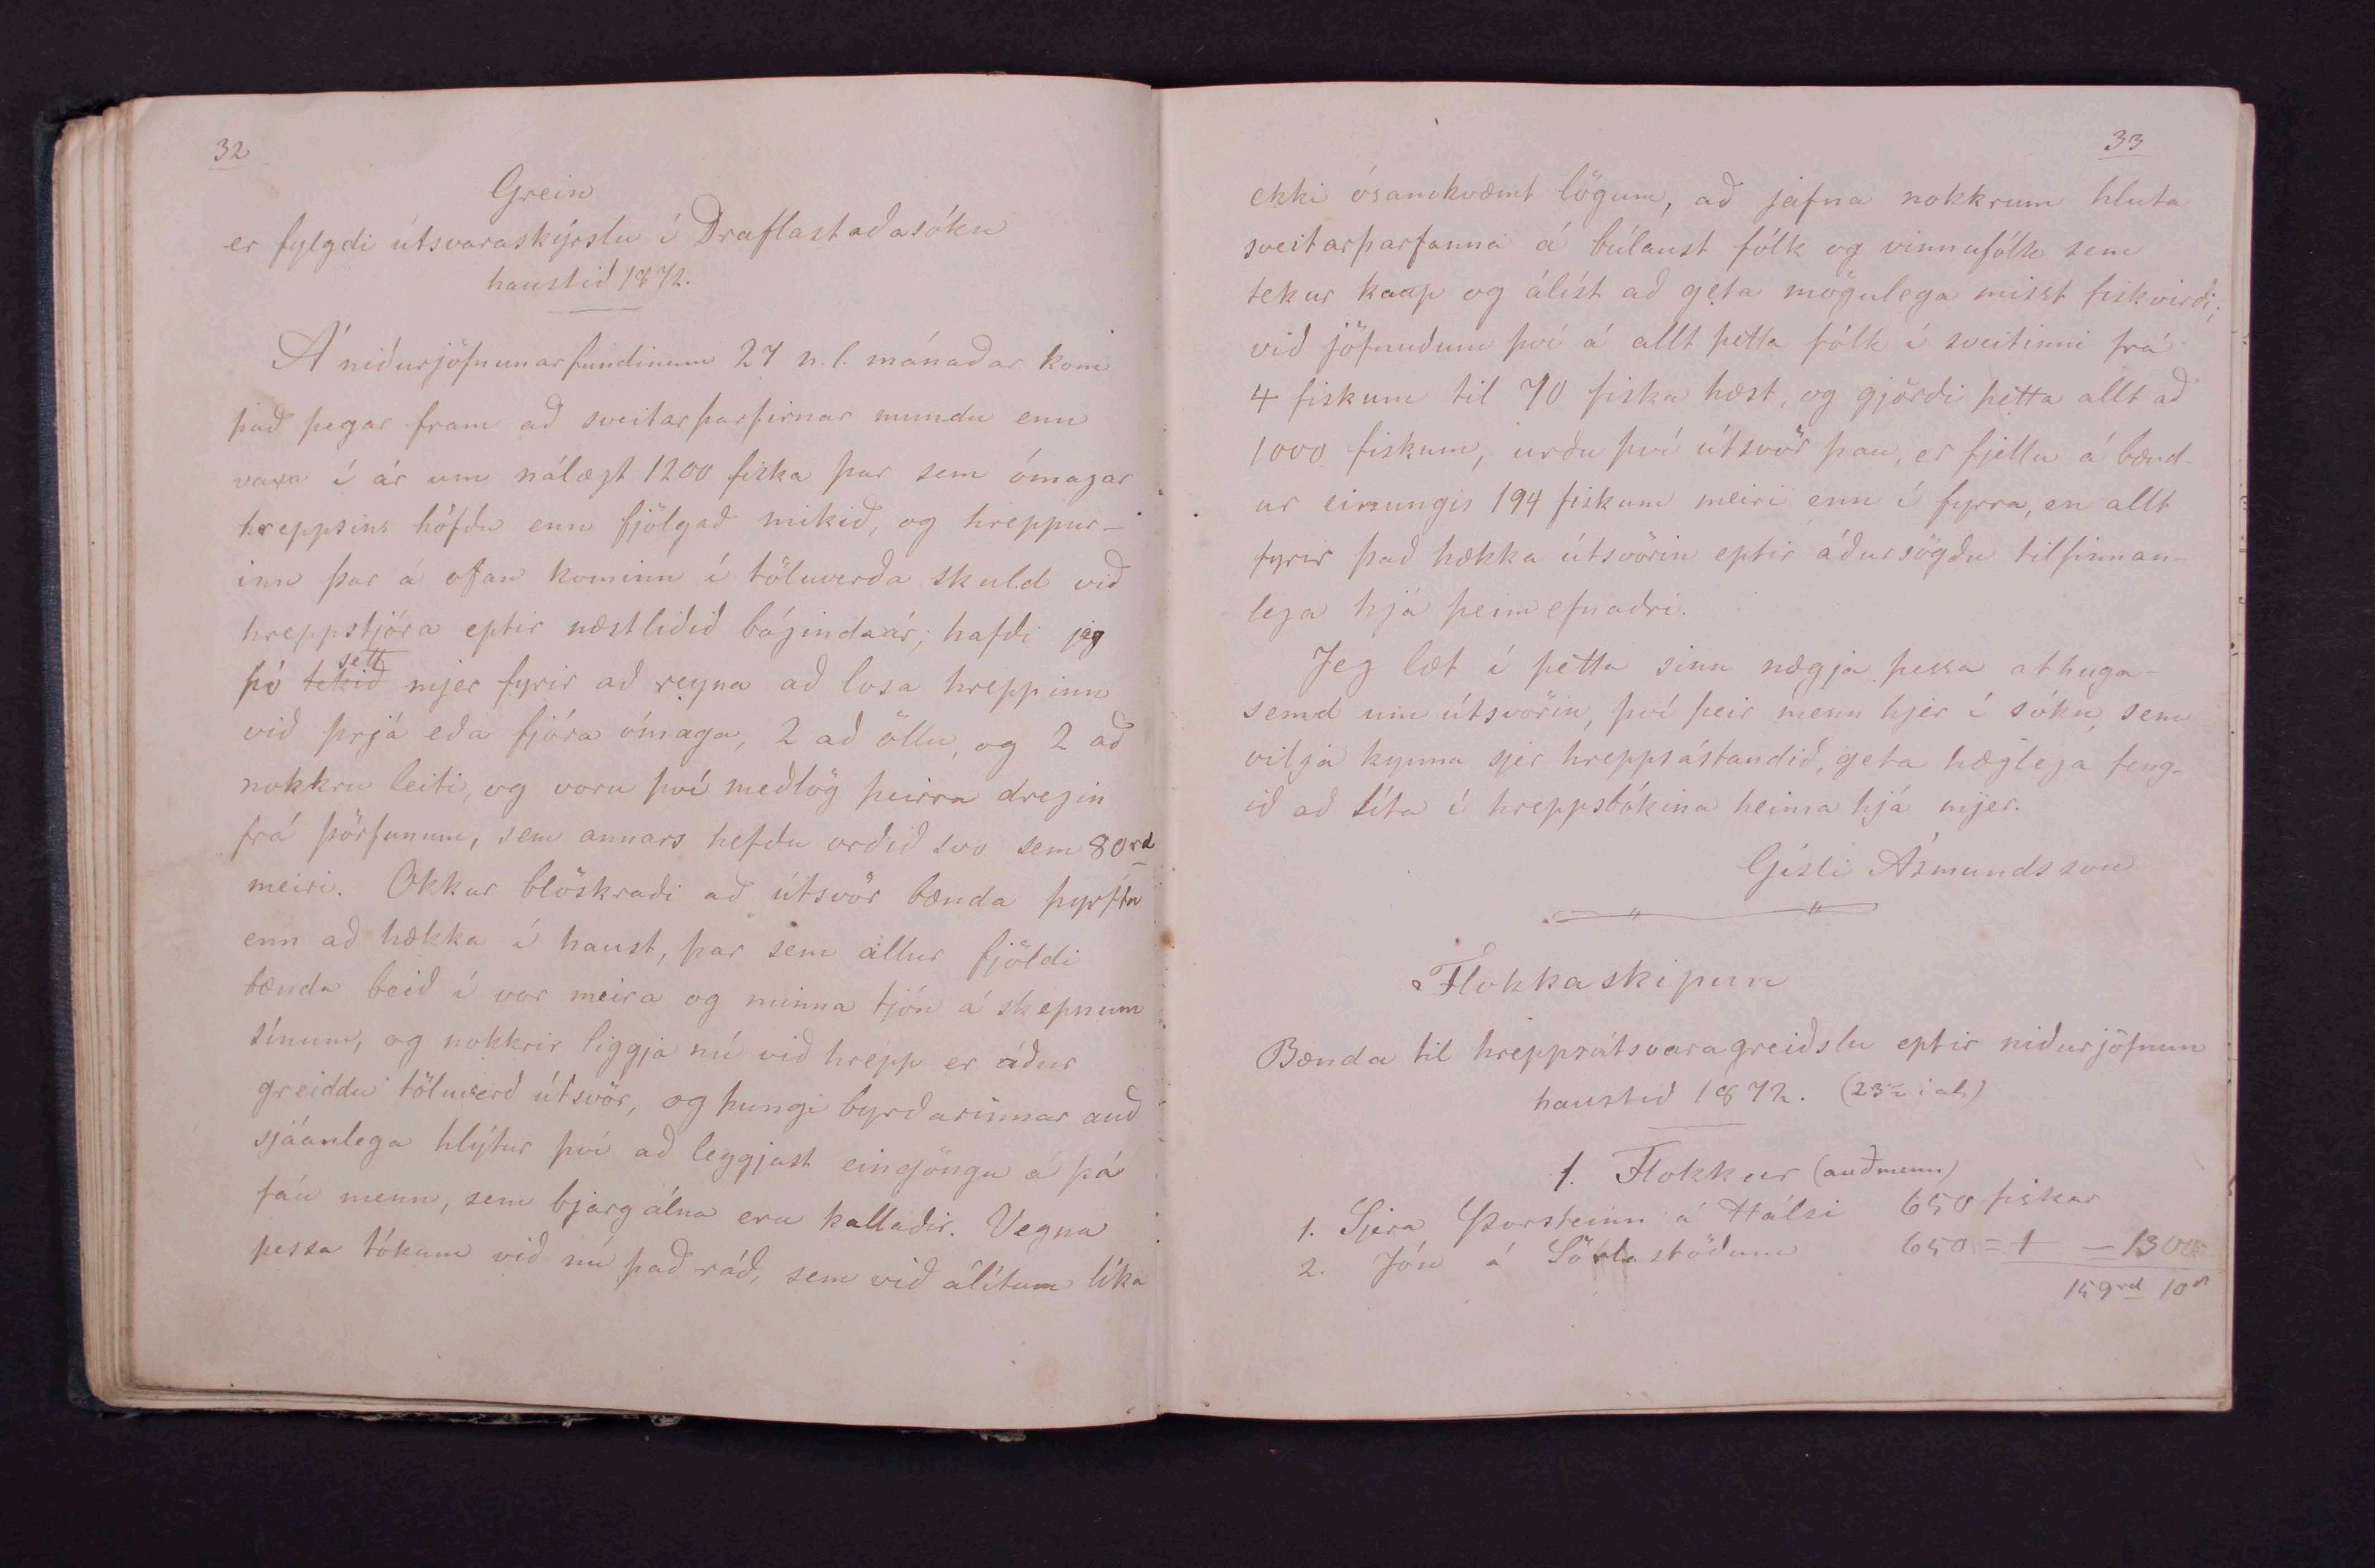 32
Grein
er fylgdi útsvaraskýrslu í Draflastaðasókn
haustið 1872.
Á niðurjöfnunarfundinum 27 n.l. mánaðar kom
það þegar fram að sveitarþarfirnar mundu enn
vaxa í ár um nálægt 1200 fiska þar sem ómagar
hreppsins höfðu enn fjölgað mikið, og hreppur-
inn þar á ofan kominn í töluverða skuld við
hreppstjóra eptir næstliðið bágindaár; hafði jeg
sett
þó tekið mjer fyrir að reyna að losa hreppinn
við þrjá eða fjóra ómaga, 2 að öllu, og 2 að
nokkru leiti, og voru því meðlög þeirra dregin
frá þörfunum, sem annars hefðu orðið svo sem 80rd
meiri. Okkur blöskraði að útsvör bænda þyrftu
enn að hækka í haust, þar sem allur fjöldi
bænda beið í vor meira og minna tjón á skepnum
sínum, og nokkrir liggja nú við hrepp er áður
greiddu töluverð útsvör, og þungi byrðarinnar auð
sjáanlega hlýtur því að leggjast eingöngu á þá
fáu menn, sem bjargálna eru kallaðir. Vegna
þessa tókum við nú það ráð, sem við álítum líka
33
ekki ósamkvæmt lögum, að jafna nokkrum hluta
sveitarþarfanna á búlaust fólk og vinnufólk sem
tekur kaup og álíst að geta mögulega misst fiskvirði;
við jöfnuðum því á allt þetta fólk í sveitinni frá
4 fiskum til 70 fiska hæst, og gjörði þetta allt að
1000 fiskum, urðu því útsvör þau, er fjellu á bænd-
ur einungis 194 fiskum meiri enn í fyrra, en allt
fyrir það hækka útsvörin eptir áðursögðu tilfinnan-
lega hjá þeim efnaðri.
Jeg læt í þetta sinn nægja þessa athuga-
semd um útsvörin, því þeir menn hjer í sókn, sem
vilja kynna sjer hreppsástandið, geta hæglega feng-
ið að líta í hreppsbókina heima hjá mjer.
Gísli Ásmundsson
Flokkaskipun
Bænda til hreppsútsvaragreiðslu eptir niðurjöfnun
haustið 1872.
1. Flokkur (auðmenn)
1. Sjera Þorsteinn á Hálsi 650 fiskar
2. Jón á Sörlastöðum 650 = 1 — 1300
159rd 10